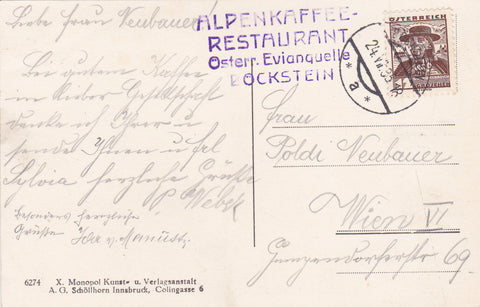 Liebe Frau Neubauer!
Bei gutem Kaffee
in lieber Gesellschaft
denke ich Ihrer u
sende Ihnen u
Sylvia herzliche Grüße
P Weber
Besonders herzliche
Grüsse
ALPENKAFFEE-
RESTAURANT
Österr. Evianquelle
BÖCKSTEIN
24.VII.
* a *
ÖSTERREICH
Frau
Poldi Neubauer
Wien VI
Gumpendorferstr 69.
6274
X. Monopol Kunst- u. Verlagsanstalt
A. G. Schöllhorn Innsbruck, Colingasse 6